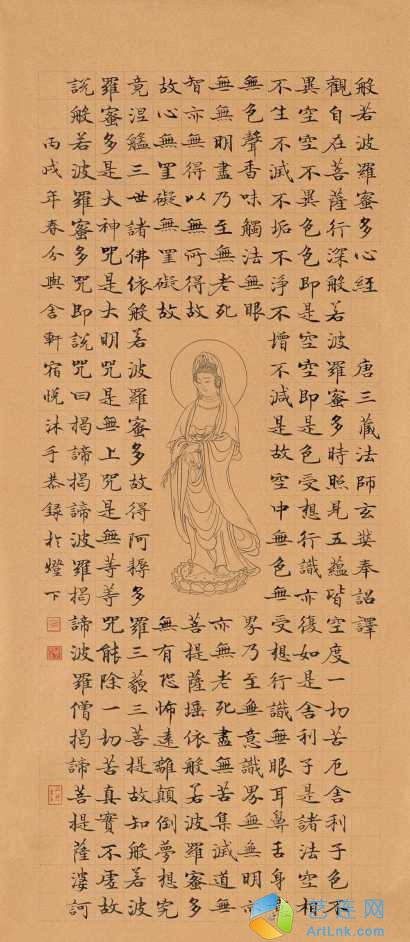 般若波羅蜜多心經 唐三藏法師玄奘奉詔譯
觀自在菩薩行深般若波羅蜜多時照見五蘊皆空度一切苦厄舍利子色不
異空空不異色色即是空空即是色受想行識亦復如是舍利子是諸法空相
不生不滅不垢不淨不增不減是故空中無色無受想行識無眼耳鼻舌身意
無色聲香味觸法無眼 界乃至無意識界無無明亦
無無明盡乃至無老死 亦無老死盡無苦集滅道無
智亦無得以無所得故 菩提薩埵依般若波羅蜜多
故心無罣礙無罣礙故 無有恐怖遠離顛倒夢想究
竟涅槃三世諸佛依般若波羅蜜多故得阿耨多羅三藐三菩提故知般若波
羅蜜多是大神咒是大明咒是無上咒是無等等咒能除一切苦真實不虛故
說般若波羅蜜多咒即說咒曰揭諦揭諦波羅揭諦波羅僧揭諦菩提薩婆訶
丙戌年春分與舍軒宿悅沐手恭錄於燈下
艺连网
ArtLnk.com